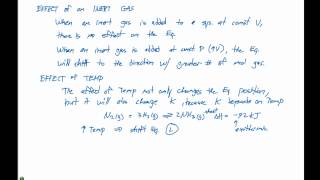 EFFECT of an INERT GAS
When an inert gas is added to a sys. at const V,
there is no effect on the Eq.
When an inert gas is added at const P (↑V), the Eq.
will shift to the direction w/ greater # of mol gas.
EFFECT OF TEMP
The effect of Temp not only changes the Eq position,
but it will also change K, because K depends on Temp
N₂(g) + 3H₂(g) ⇌ 2NH₃(g) + heat ΔH = -92 kJ
↑ Temp ⇒ shift Eq. L ↑ exothermic